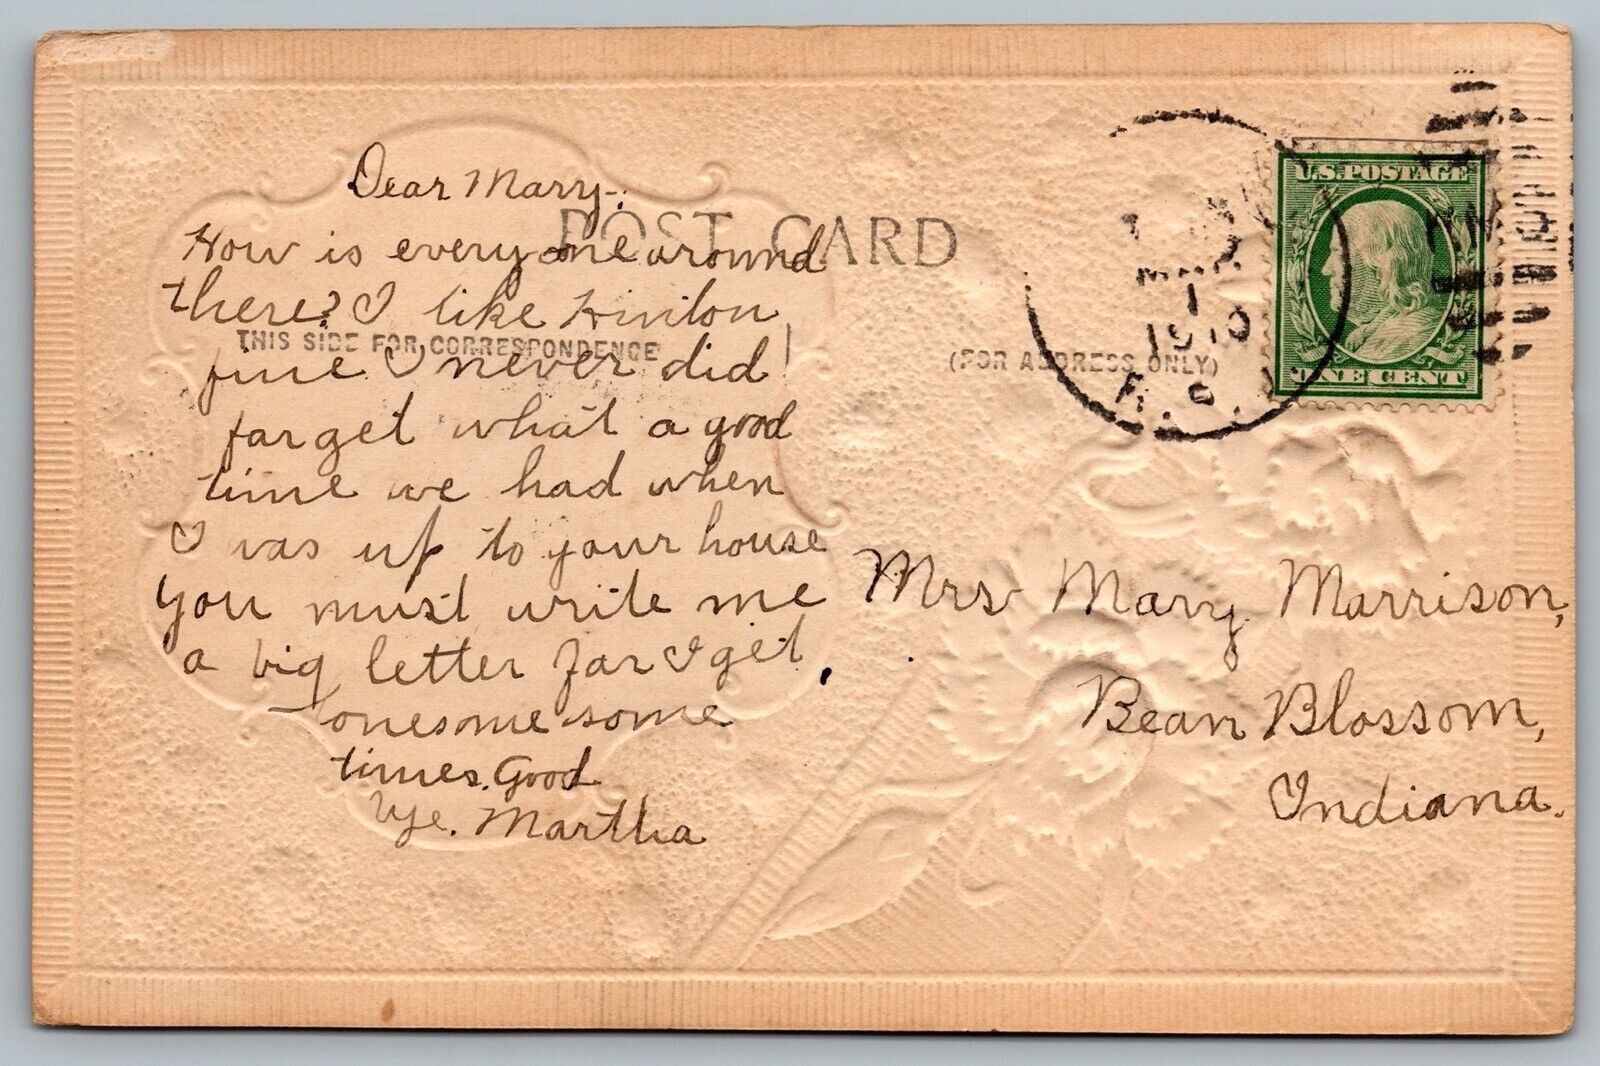 Dear Mary-.
POST CARD
How is everyone around
there? I like Hinton
THIS SIDE FOR CORRESPONDENCE
fine I never did
farget what a good
time we had when
I was up to your house
you must write me
a big letter far I get
lonesome some
times. Good
bye. Martha
(FOR ADDRESS ONLY)
MAR
1
1910
R.P.O.
U.S. POSTAGE
ONE CENT
Mrs Mary Marrison,
Bean Blossom,
Indiana.